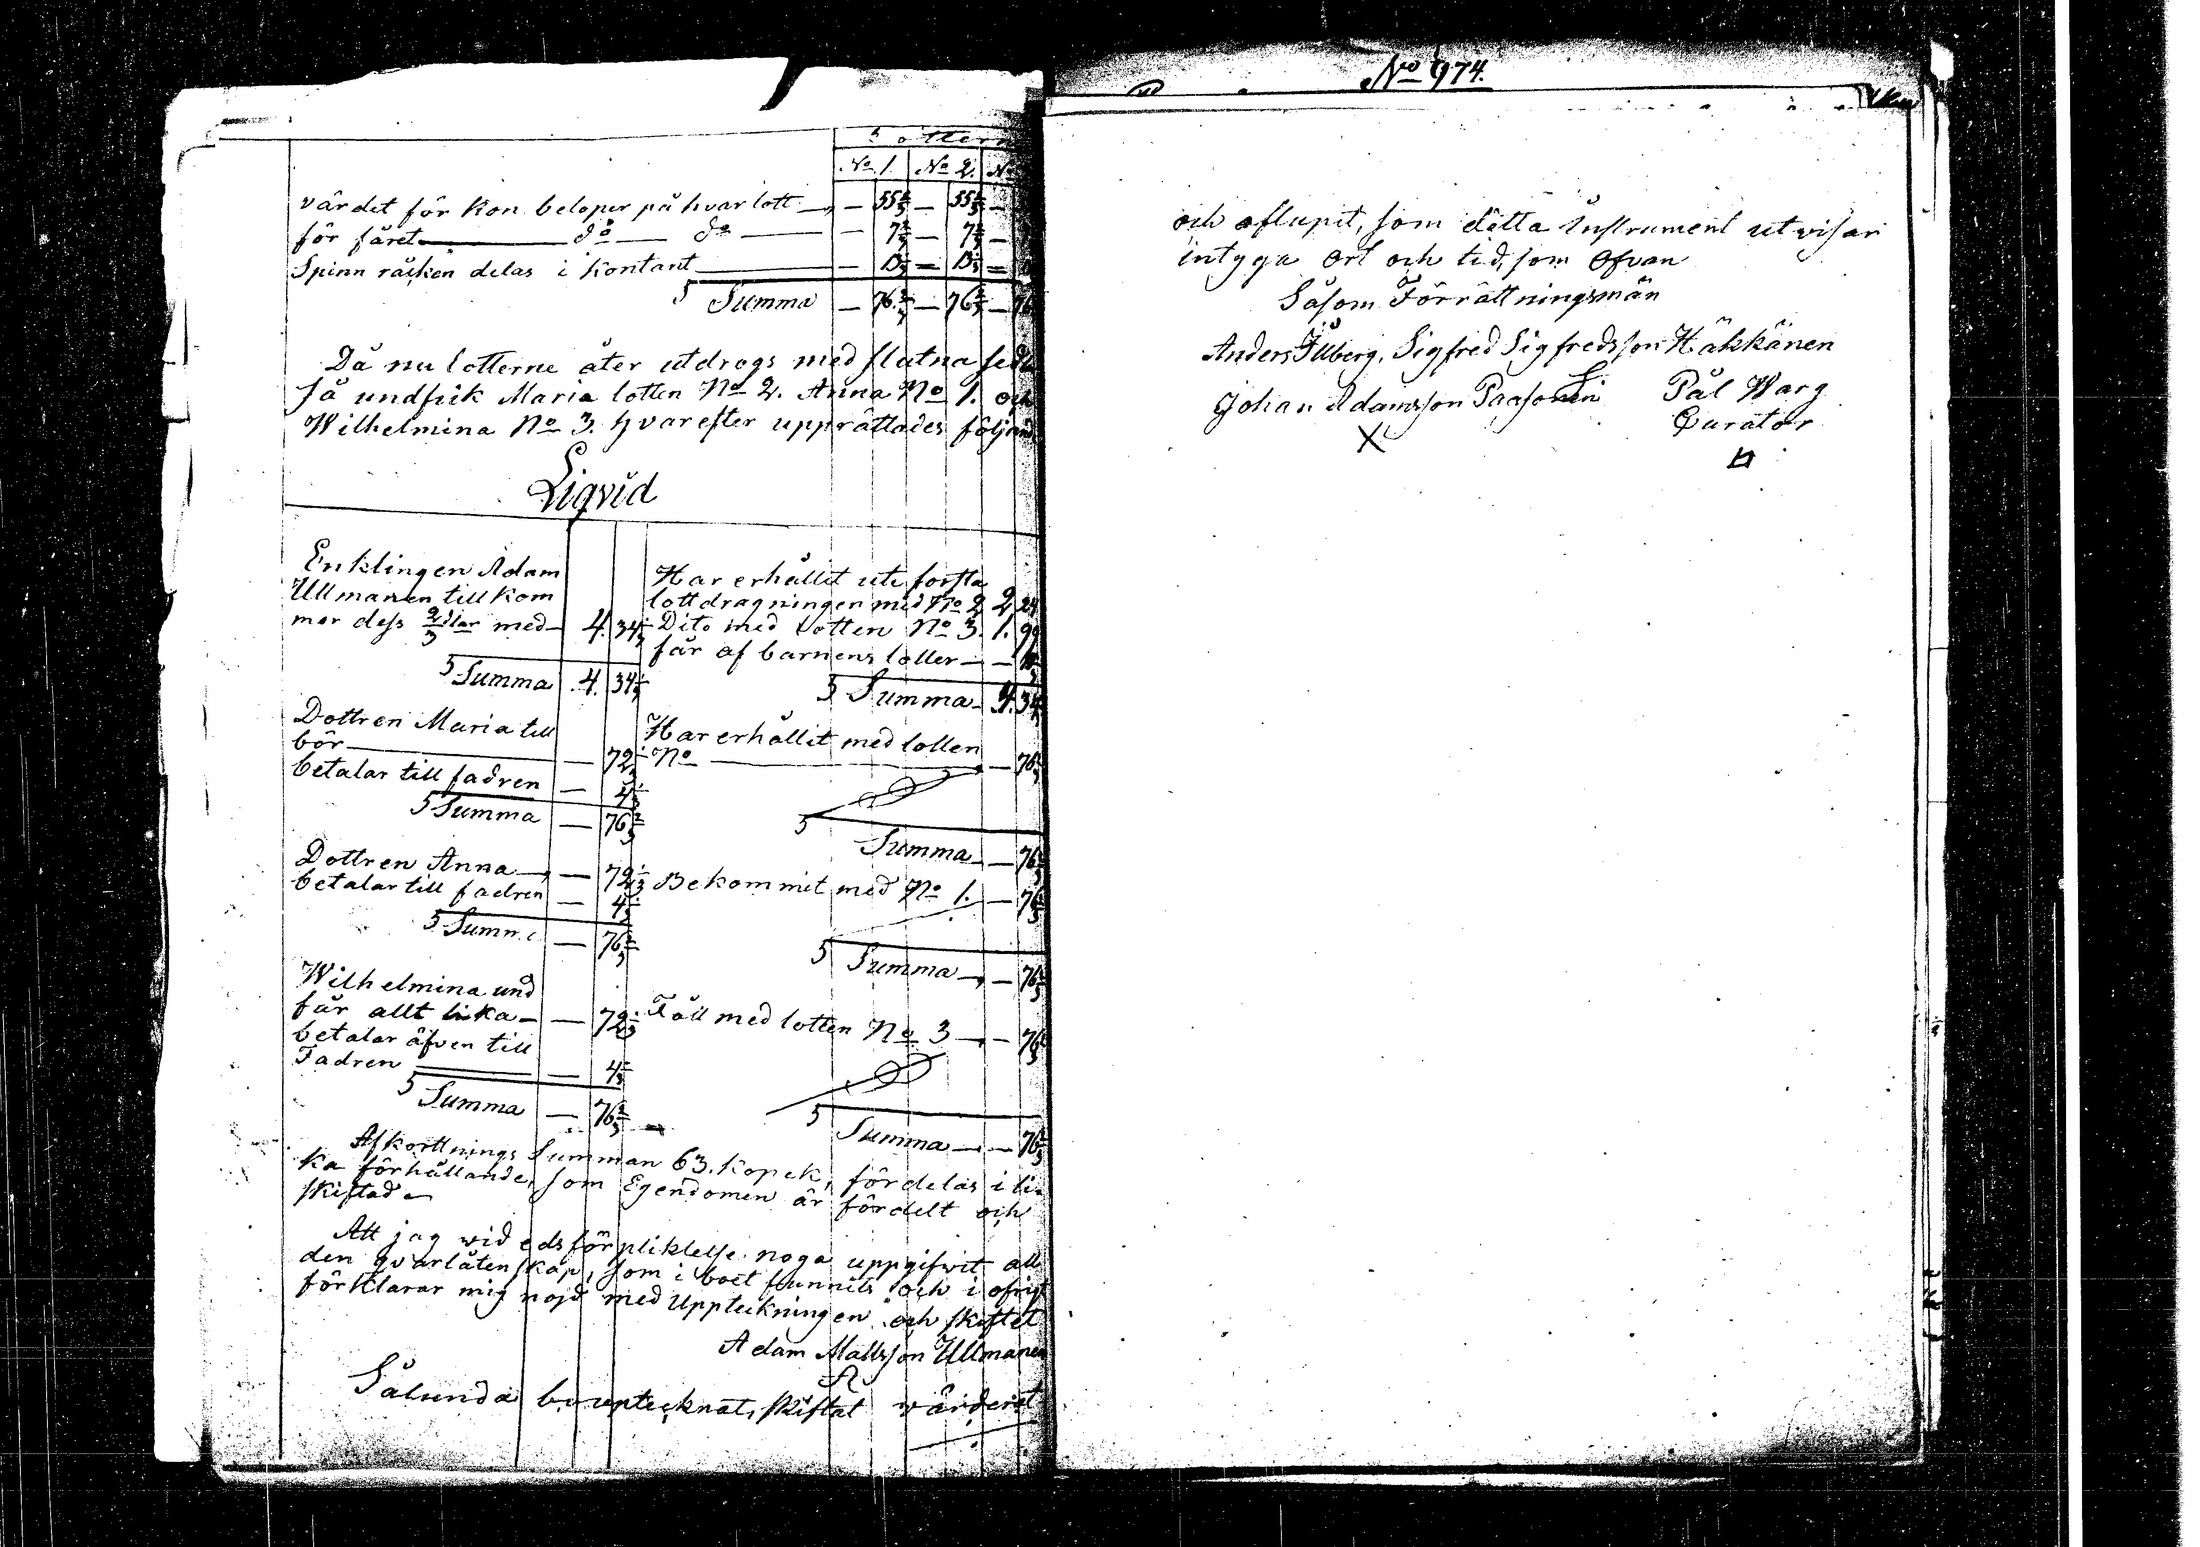 No 974.
Lotterne
No 1. No 2. No
värdet för Kon beloper på hvar lott — 55 2/3 — 55 2/3 —
för fåret do do — 7 2/3 — 7 2/3 —
Spinn råcken delas i Kontant — 13 1/3 — 13 1/3 —
Summa — 76 2/3 — 76 2/3 — 76
Då nu lotterne åter utdrogs med slutna sedl
så undfick Maria lotten No 2. Anna No 1. och
Wilhelmina No 3. hvarefter upprättades följand
Liqvid
Enklingen Adam
Ullmanen tillkom
mer dess 2/3 dlar med 4. 34 1/3
Summa 4. 34 1/3
Har erhållit uti forsta
lottdragningen med No 2 2. 24
Dito med Lotten No 3. 1. 99
får af barnens lotter — —
Summa 4. 34
Dottren Maria till
bör — 72 1/3
betalar till fadren — 4 1/3
Summa — 76 2/3
Har erhållit med lotten
No — 76 2/3
Summa — 76 2/3
Dottren Anna — 72 1/3
betalar till fadren — 4 1/3
Summa — 76 2/3
Bekommit med No 1. — 76 2/3
Summa — 76 2/3
Wilhelmina und
får allt lika — 72 1/3
betalar äfven till
Fadren — 4 1/3
Summa — 76 2/3
Föll med lotten No 3 — 76 2/3
Summa — 76 2/3
Afkorttnings Summan 63. Kopek, fördelas i li
ka förhållande, som Egendomen är fördelt och
skiftad
Att jag wid edsförpliktelse noga uppgifwit all
den qvarlåtenskap, som i boet funnits och i ofrigt
förklarar mig nojd med Uppteckningen och skiftet
Adam Mattsson Ullmanen
Sålunda bouptecknat, skiftat värderat
och aflupit, som detta Instrument utvisar
intyga Ort och tid, som Ofvan
Såsom Förrättningsmän
Anders Illberg, Sigfred Sigfredsson Häkkänen
Johan Adamsson Paasonen Pål Warg
X Curator